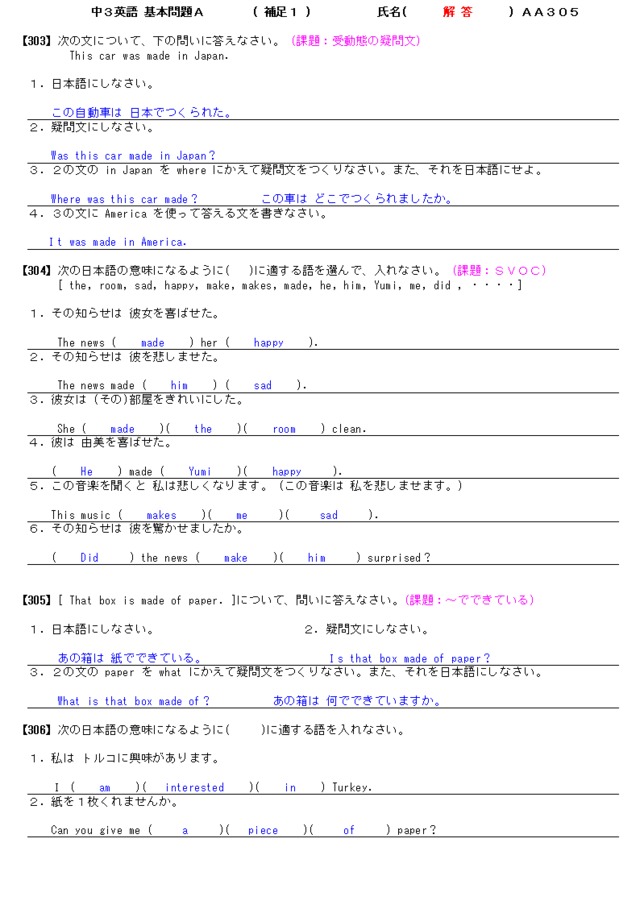 中３英語 基本問題Ａ ( 補足１ ) 氏名( 解 答 ) ＡＡ３０５
【303】次の文について、下の問いに答えなさい。（課題：受動態の疑問文）
This car was made in Japan.
１．日本語にしなさい。
この自動車は 日本でつくられた。
２．疑問文にしなさい。
Was this car made in Japan？
３．２の文の in Japan を where にかえて疑問文をつくりなさい。また、それを日本語にせよ。
Where was this car made？ この車は どこでつくられましたか。
４．３の文に America を使って答える文を書きなさい。
It was made in America.
【304】次の日本語の意味になるように( )に適する語を選んで、入れなさい。（課題：ＳＶＯＣ）
[ the, room, sad, happy, make, makes, made, he, him, Yumi, me, did , ・・・・]
１．その知らせは 彼女を喜ばせた。
The news ( made ) her ( happy ).
２．その知らせは 彼を悲しませた。
The news made ( him ) ( sad ).
３．彼女は（その)部屋をきれいにした。
She ( made )( the )( room ) clean.
４．彼は 由美を喜ばせた。
( He ) made ( Yumi )( happy ).
５．この音楽を聞くと 私は悲しくなります。（この音楽は 私を悲しませます。）
This music ( makes )( me )( sad ).
６．その知らせは 彼を驚かせましたか。
( Did ) the news ( make )( him ) surprised？
【305】[ That box is made of paper. ]について、問いに答えなさい。(課題：～でできている）
１．日本語にしなさい。 ２．疑問文にしなさい。
あの箱は 紙でできている。 Is that box made of paper？
３．２の文の paper を what にかえて疑問文をつくりなさい。また、それを日本語にしなさい。
What is that box made of？ あの箱は 何でできていますか。
【306】次の日本語の意味になるように( )に適する語を入れなさい。
１．私は トルコに興味があります。
I ( am )( interested )( in ) Turkey.
２．紙を１枚くれませんか。
Can you give me ( a )( piece )( of ) paper？